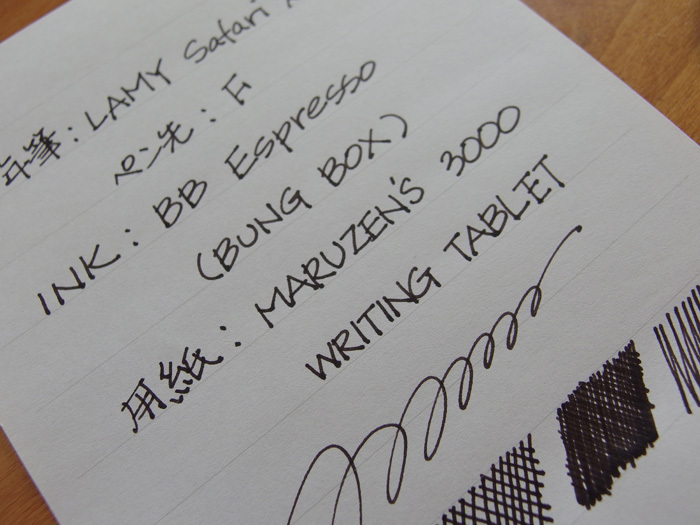 年筆: LAMY Safari
ペン先: F
INK: BB Espresso
(BUNG BOX)
用紙: MARUZEN'S 3000
WRITING TABLET